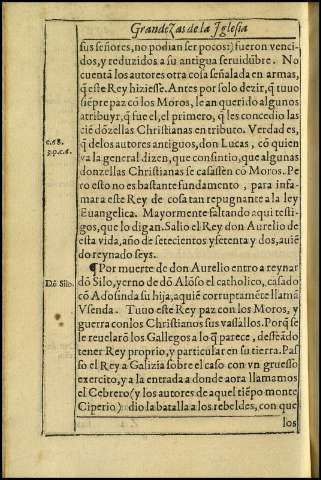 Grandezas de la Iglesia
sus señores, no podian ser pocos:) fueron venci-
dos, y reduzidos a su antigua seruidũbre. No
cuentã los autores otra cosa señalada en armas,
q̃ este Rey hiziesse. Antes por solo dezir, q̃ tuuo
siẽpre paz cõ los Moros, le an querido algunos
atribuyr, q̃ fue el, el primero, q̃ les concedio las
ciẽ dõzellas Christianas en tributo. Verdad es,
c.18.
q̃ de los autores antiguos, don Lucas, cõ quien
3.p.c.6.
va la general dizen, que consintio, que algunas
donzellas Christianas se casassen cõ Moros. Pe
ro esto no es bastante fundamento, para infa-
mar a este Rey de cosa tan repugnante a la ley
Euangelica. Mayormente faltando aqui testi-
gos, que lo digan. Salio el Rey don Aurelio de
esta vida, año de setecientos y setenta y dos, auiẽ
do reynado seys.
¶Por muerte de don Aurelio entro a reynar
Dõ Silo.
dõ Silo, yerno de dõ Alõso el catholico, casado
cõ Adosinda su hija, aquiẽ corruptamẽte llamã
Vsenda. Tuuo este Rey paz con los Moros, y
guerra con los Christianos sus vasallos. Porq̃ se
le reuelarõ los Gallegos a lo q̃ parece, desseãdo
tener Rey proprio, y particular en su tierra. Pas
so el Rey a Galizia sobre el caso con vn gruesso
exercito, y a la entrada a donde aora llamamos
el Cebrero (y los autores de aquel tiẽpo monte
Ciperio) dio la batalla a los rebeldes, con que
los